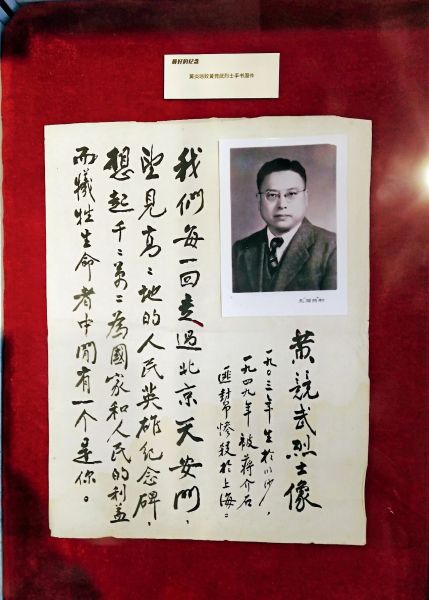 最好的纪念
黄炎培致黄竞武烈士手书原件
黄競武烈士像
一九〇三年生於川沙，
一九四九年被蔣介石
匪幫惨殺於上海。
我們每一回走過北京天安門，
望見高〻地的人民英雄紀念碑，
想起千〻萬〻為國家和人民的利益
而犧牲生命者中間有一个是你。